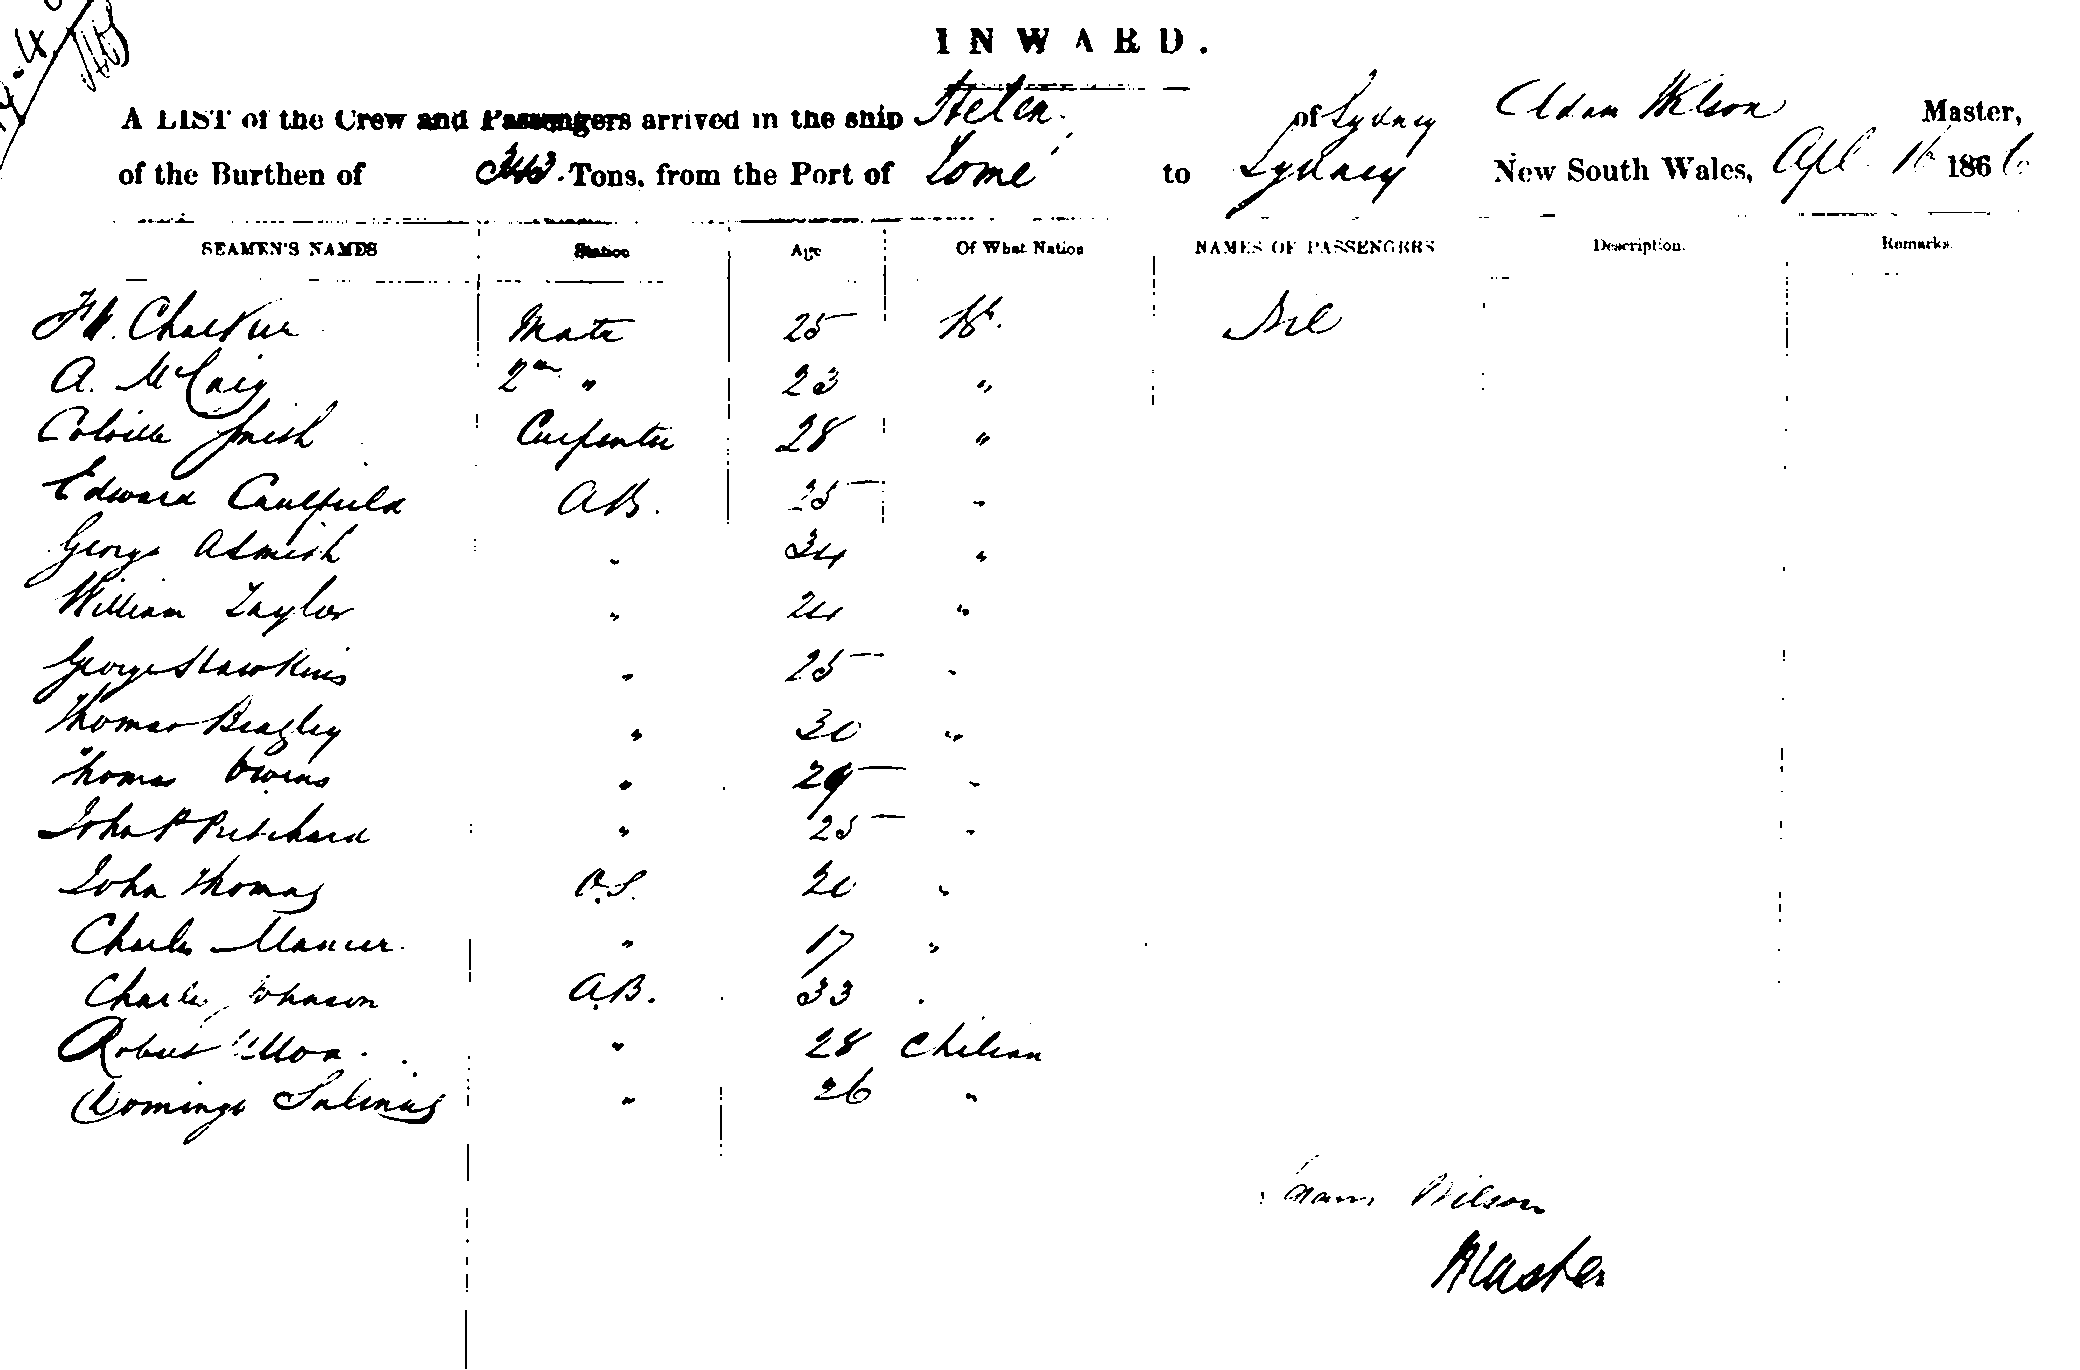 INWARD.
A LIST of the Crew and Passengers arrived in the ship Helen of Sydney Adam Wilson Master,
of the Burthen of 343 Tons, from the Port of Tomé to Sydney New South Wales, Apl 16 1866
SEAMEN'S NAMES Station Age Of What Nation NAMES OF PASSENGERS Description. Remarks.
Mate 25 Nil
A. McCaig 2nd " 23 "
Colville Smith Carpenter 28 "
Edward Caulfield A.B. 25 "
George A Smith " 34 "
William Taylor " 24 "
George Hawkins " 25 "
Thomas Beagley " 30 "
Thomas Owens " 29 "
John P Pritchard " 25 "
John Thomas O.S. 20 "
Charles " 17 "
Charles Johnson A.B. 33 "
Robert " 28 Chilian
Domingo Salinas " 26 "
Adam Wilson
Master